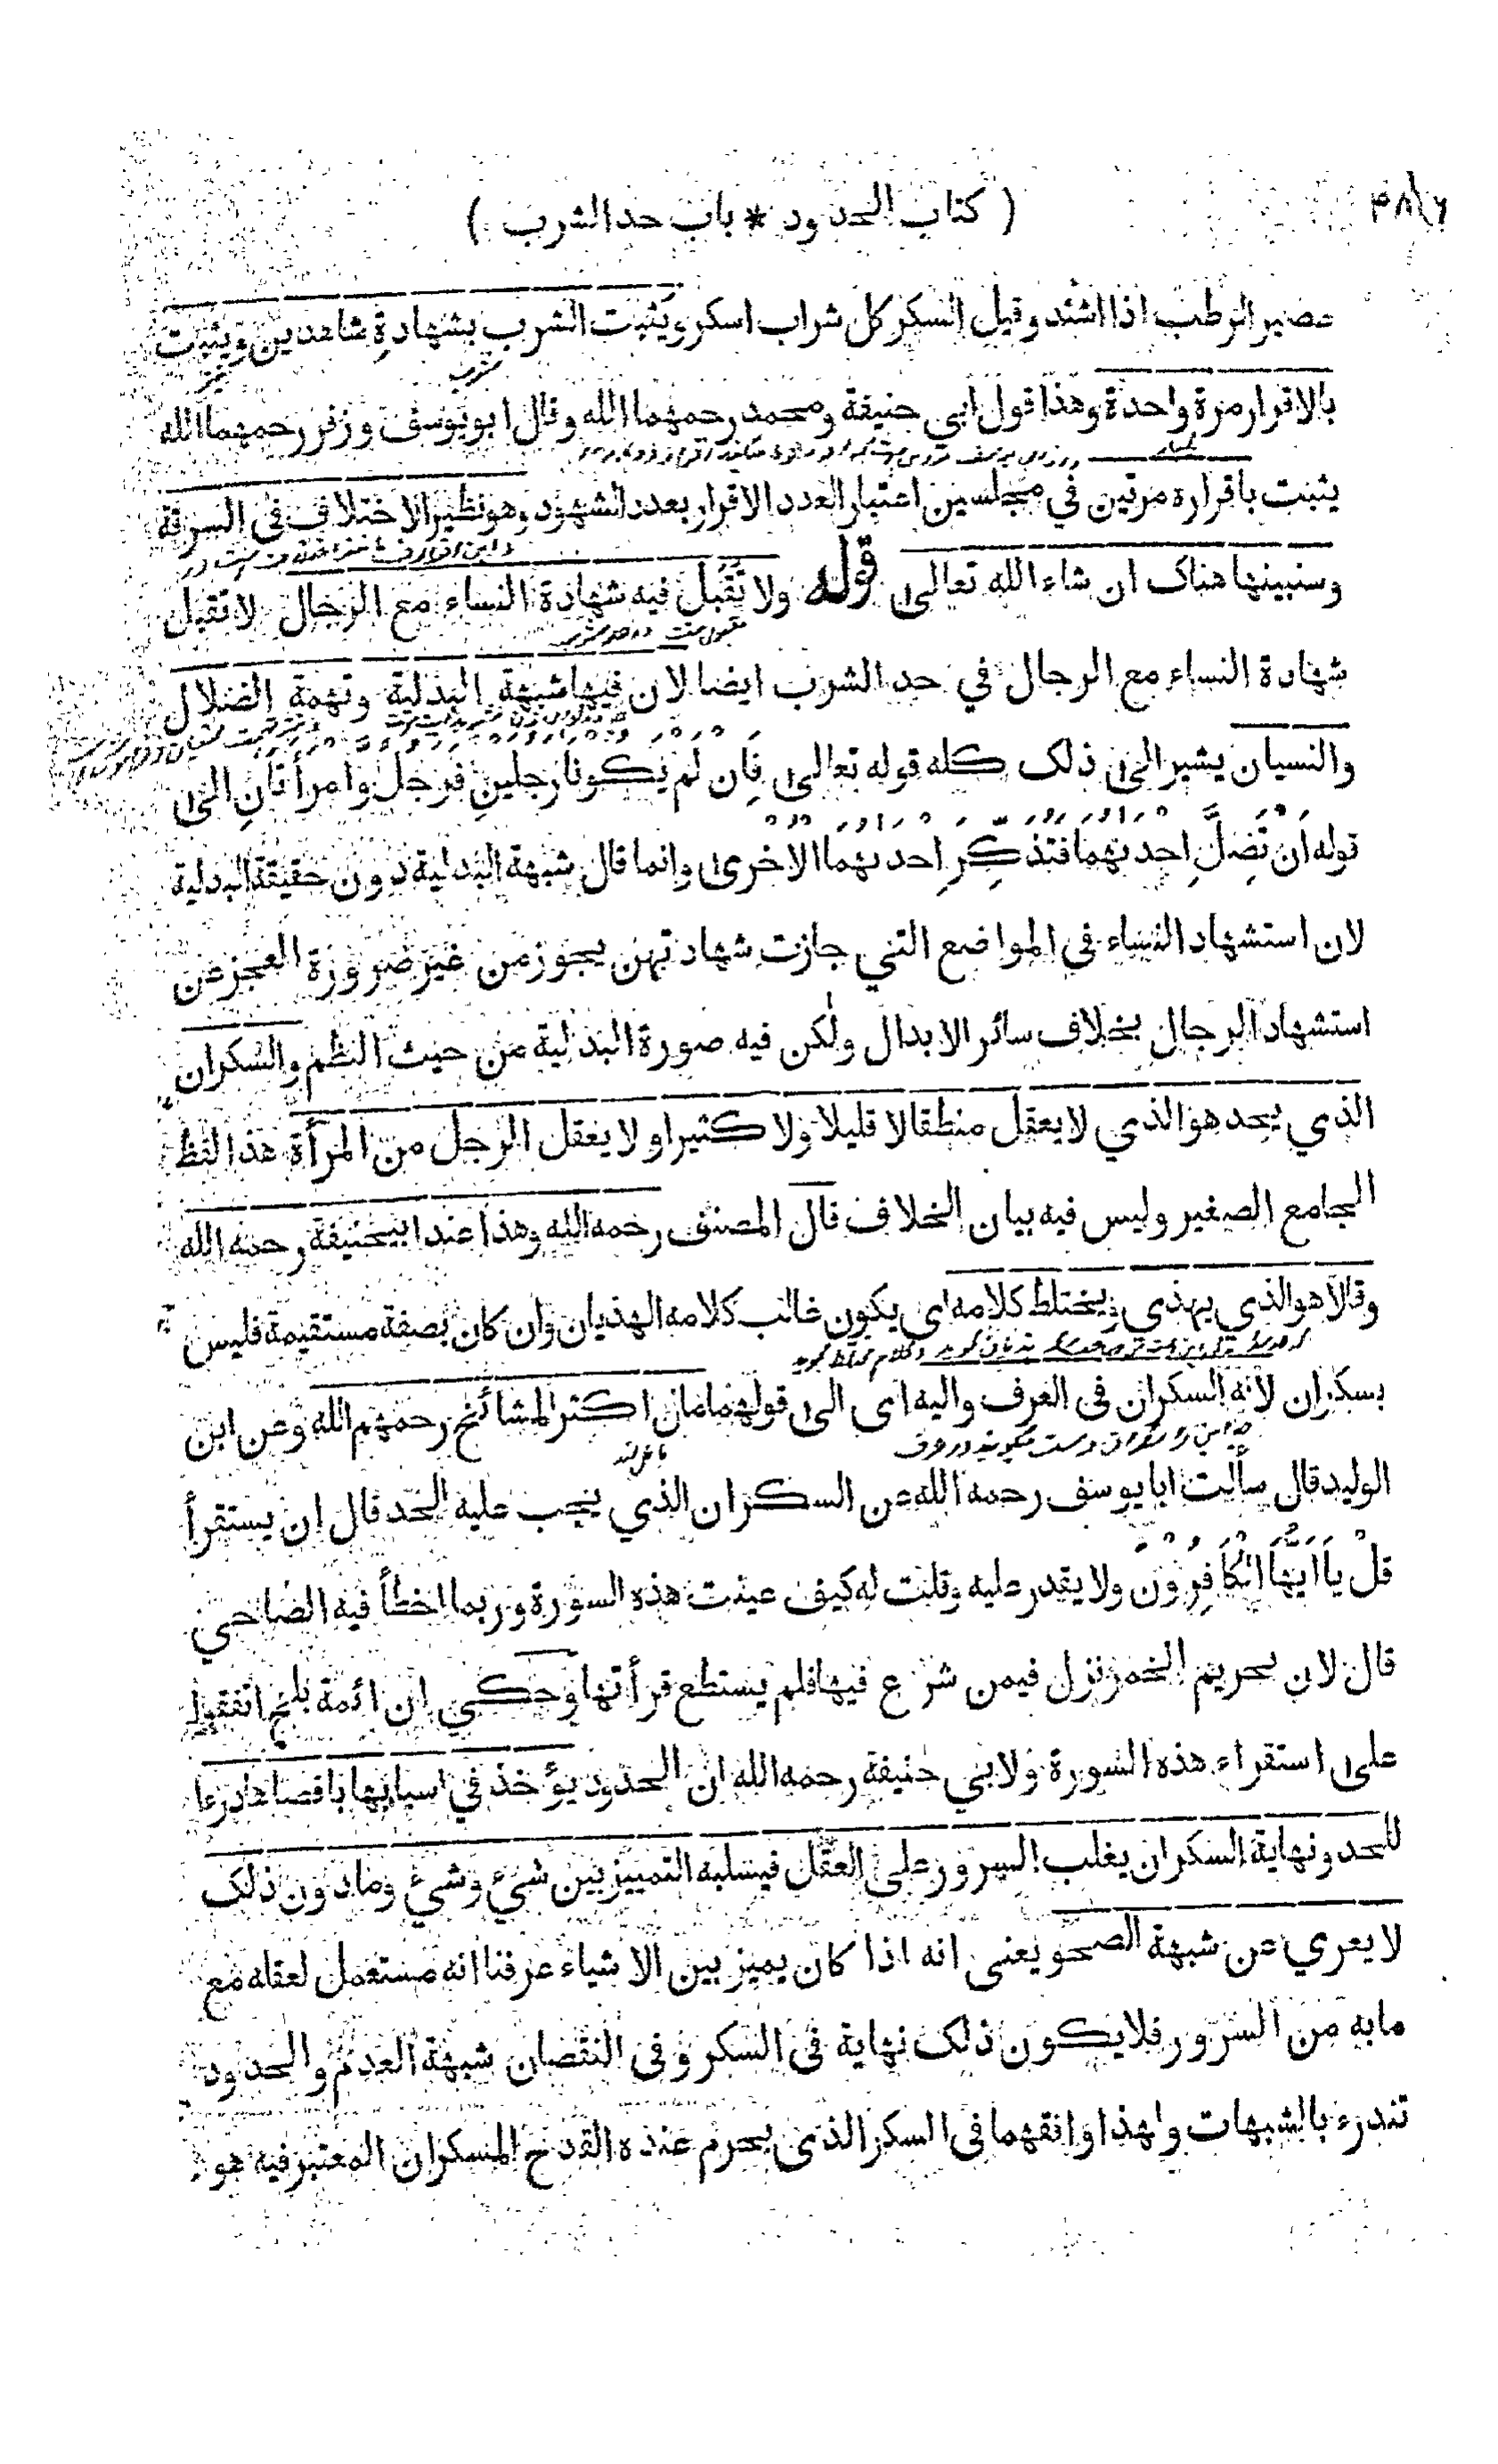 ( كتاب الحدود * باب حد الشرب )
عصير الرطب اذا اشتد وقيل السكر كل شراب اسكر ويثبت الشرب بشهادةِ شاهدين ويثبت
بالاقرار مرة واحدة وهذا قول ابي حنيفة ومحمد رحمهما الله وقال ابو يوسف وزفر رحمهما الله
يثبت باقراره مرتين في مجلسين اعتبار العدد الاقرار بعدد الشهود وهو نظير الاختلاف في السرقة
وسنبينها هناك ان شاء الله تعالى قوله ولا تُقْبَل فيه شهادة النساء مع الرجال لا تقبل
شهادة النساء مع الرجال في حد الشرب ايضا لان فيها شبهة البدلية وتهمة الضلال
والنسيان يشير الى ذلك كله قوله تعالى فَاِن لَم يَكُونا رجلينِ فرجل وامرأتانِ الى
قوله اَنْ تَضِلَّ اِحْدٰىهُما فتذكِّرِ اِحْدٰىهُما الاخرى وانما قال شبهة البدلية دون حقيقة البدلية
لان استشهاد النساء في المواضع التي جازت شهادتهن يجوز من غير ضرورة العجز عن
استشهاد الرجال بخلاف سائر الابدال ولكن فيه صورة البدلية من حيث النظم والسكران
الذي يحد هو الذي لا يعقل منطقا لا قليلا ولا كثيرا و لا يعقل الرجل من المرأة هذا لفظ
الجامع الصغير وليس فيه بيان الخلاف قال المصنف رحمه الله وهذا عند ابيحنيفة رحمه الله
وقالا هو الذي يهذي ويختلط كلامه اى يكون غالب كلامه الهذيان وان كان بصفة مستقيمة فليس
بسكران لانه السكران في العرف واليه اى الى قولهما مال اكثر المشائخ رحمهم الله وعن ابن
الوليد قال سألت ابا يوسف رحمه الله عن السكران الذي يجب عليه الحد قال ان يستقرأ
قلْ ياَ اَيُّهَا الْكَافِرُوْنَ ولا يقدر عليه وقلت له كيف عينت هذه السورة وربما اخطأ فيه الصاحي
قال لان تحريم الخمر نزل فيمن شرع فيها فلم يستطع قرأتها وحكي ان ائمة بلخ اتفقوا
على استقراء هذه السورة ولابي حنيفة رحمه الله ان الحدود يؤخذ في اسبابها باقصاها درءا
للحد ونهاية السكر ان يغلب السرور على العقل فيسلبه التمييز بين شيء وشيء وما دون ذلك
لا يعري عن شبهة الصحو يعني انه اذا كان يميز بين الاشياء عرفنا انه مستعمل لعقله مع
ما به من السرور فلا يكون ذلك نهاية في السكر وفي النقصان شبهة العدم والحدود
تندرء بالشبهات ولهذا وافقهما في السكر الذى يحرم عنده القدح المسكر ان المعتبر فيه هو